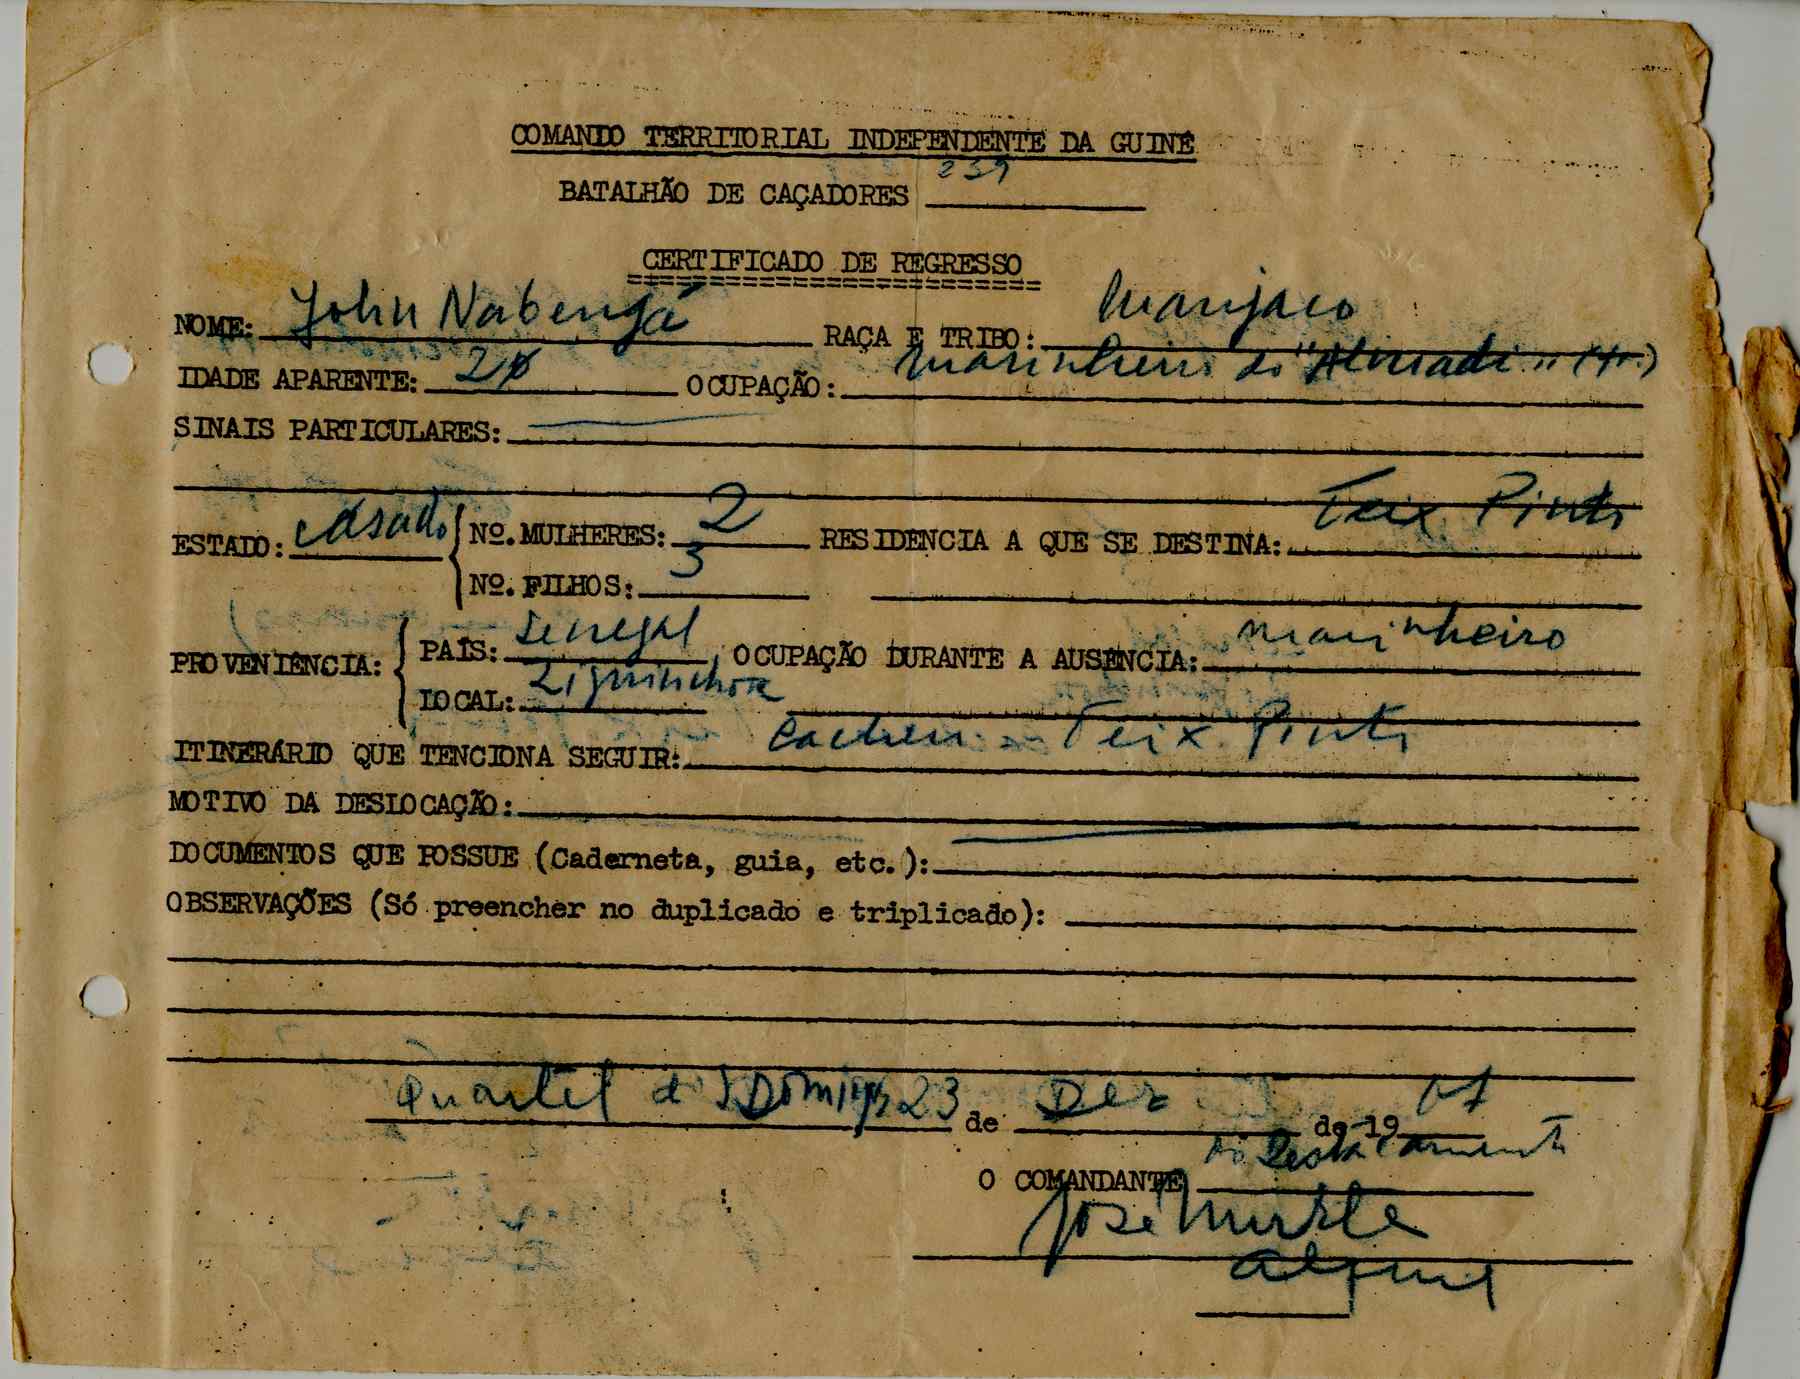 COMANDO TERRITORIAL INDEPENDENTE DA GUINÉ
BATALHÃO DE CAÇADORES 239
CERTIFICADO DE REGRESSO
NOME: John Nabengá RAÇA E TRIBO: Manjaco
IDADE APARENTE: OCUPAÇÃO: marinheiro do
SINAIS PARTICULARES:
ESTADO: casado Nº. MULHERES: 2 RESIDENCIA A QUE SE DESTINA: Teix. Pinto
Nº. FILHOS: 3
PROVENIÊNCIA: PAÍS: Senegal, OCUPAÇÃO DURANTE A AUSENCIA: marinheiro
LOCAL: Ziguinchor
ITINERÁRIO QUE TENCIONA SEGUIR: Cacheu - Teix. Pinto
MOTIVO DA DESLOCAÇÃO:
DOCUMENTOS QUE POSSUE (Caderneta, guia, etc.):
OBSERVAÇÕES (Só preencher no duplicado e triplicado):
Quartel de S. Domingos 23 de Dez de 19
O COMANDANTE do Destacamento
José